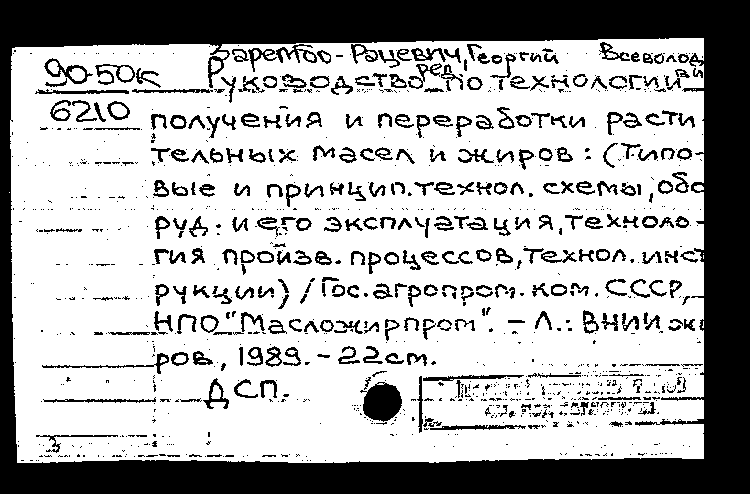 Зарембо-Рацевич, Георгий Всеволодови
90-50к Руководство по технологии
ред.
6210 получения и переработки расти-
тельных масел и жиров : (Типо-
вые и принцип. технол. схемы, обо
руд. и его эксплуатация, техноло-
гия произв. процессов, технол. инст
рукции) / Гос. агропром. ком. СССР,
НПО "Масложирпром". - Л. : ВНИИжи
ров, 1989. - 22 см.
ДСП.
3